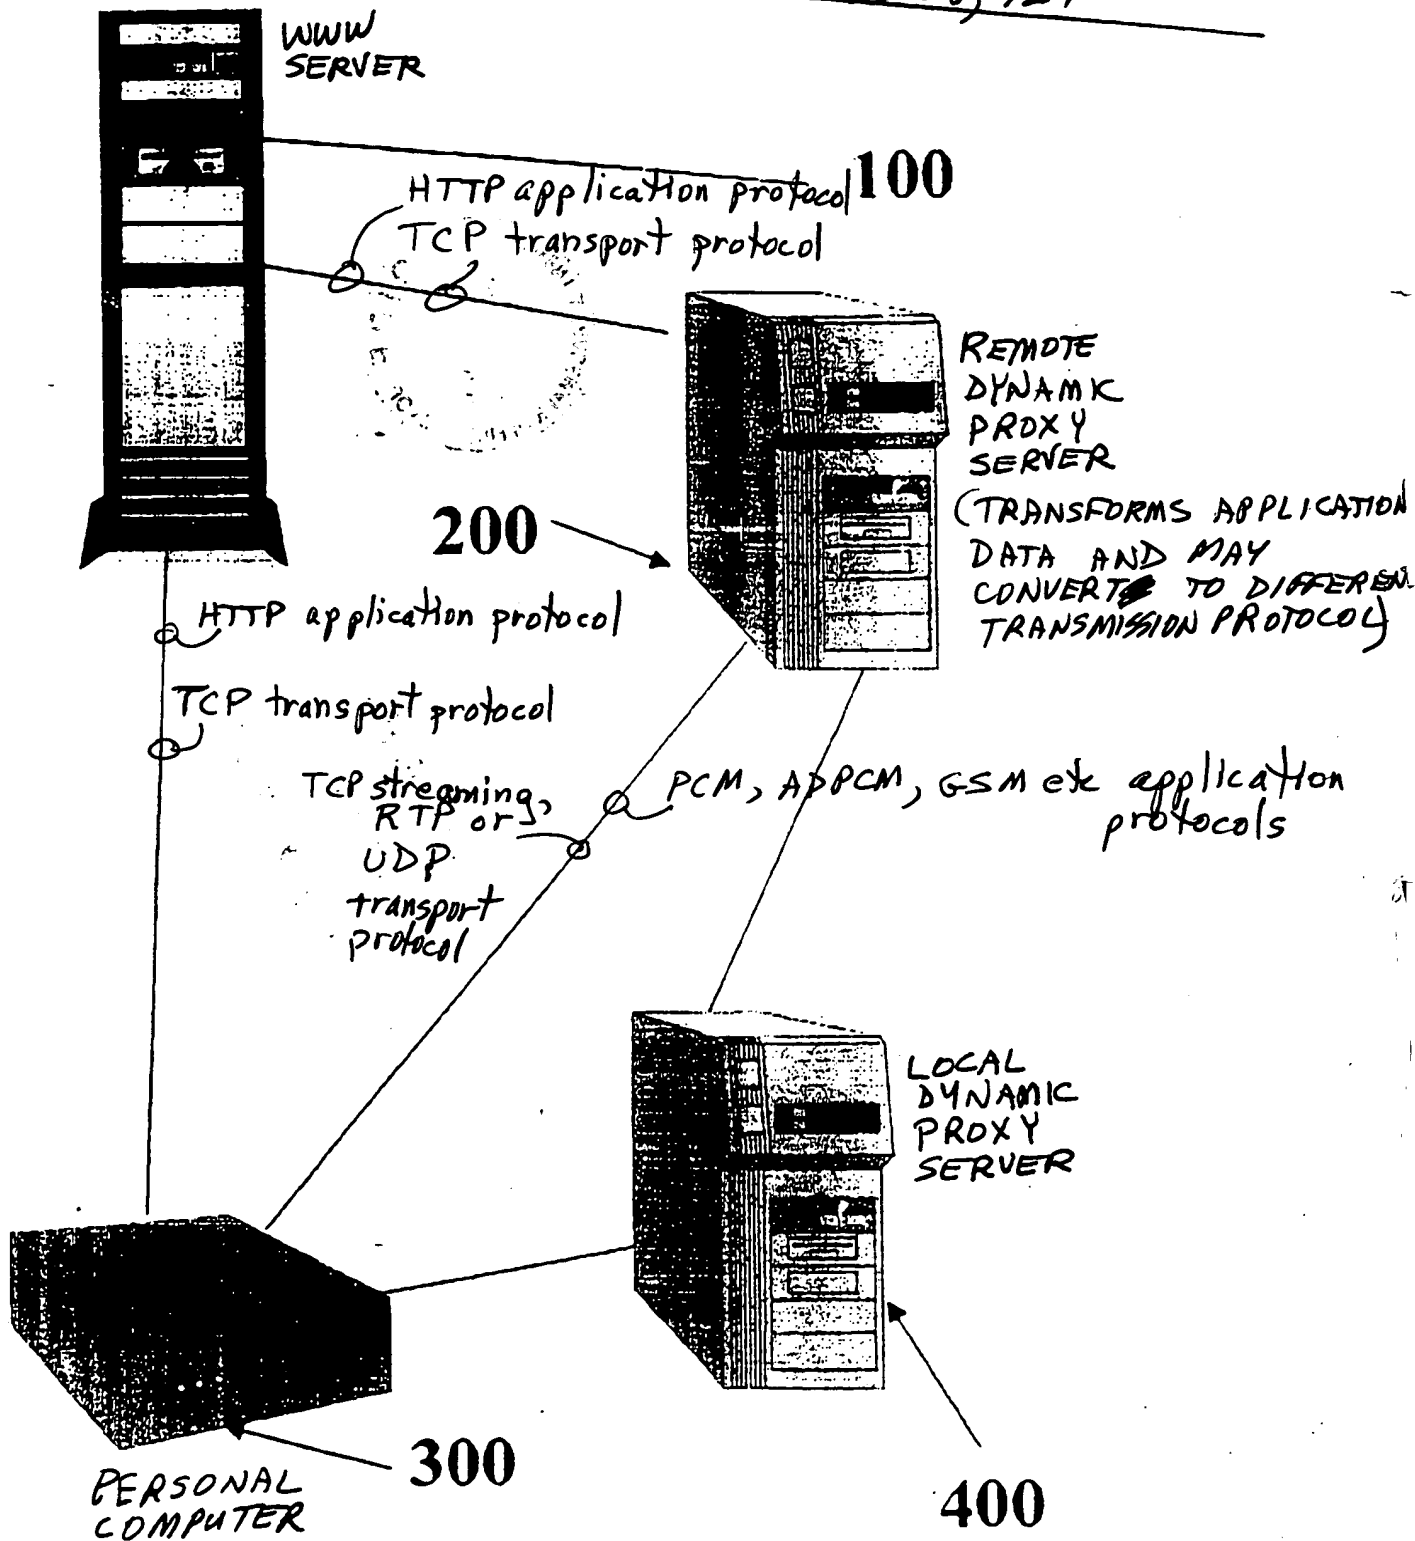 WWW
SERVER
100
HTTP application protocol
TCP transport protocol
REMOTE
DYNAMIC
PROXY
SERVER
(TRANSFORMS APPLICATION
DATA AND MAY
CONVERT TO DIFFEREN
TRANSMISSION PROTOCOL)
200
HTTP application protocol
TCP transport protocol
TCP streaming,
RTP or
UDP
transport
protocol
PCM, ADPCM, GSM etc application
protocols
LOCAL
DYNAMIC
PROXY
SERVER
300
PERSONAL
COMPUTER
400